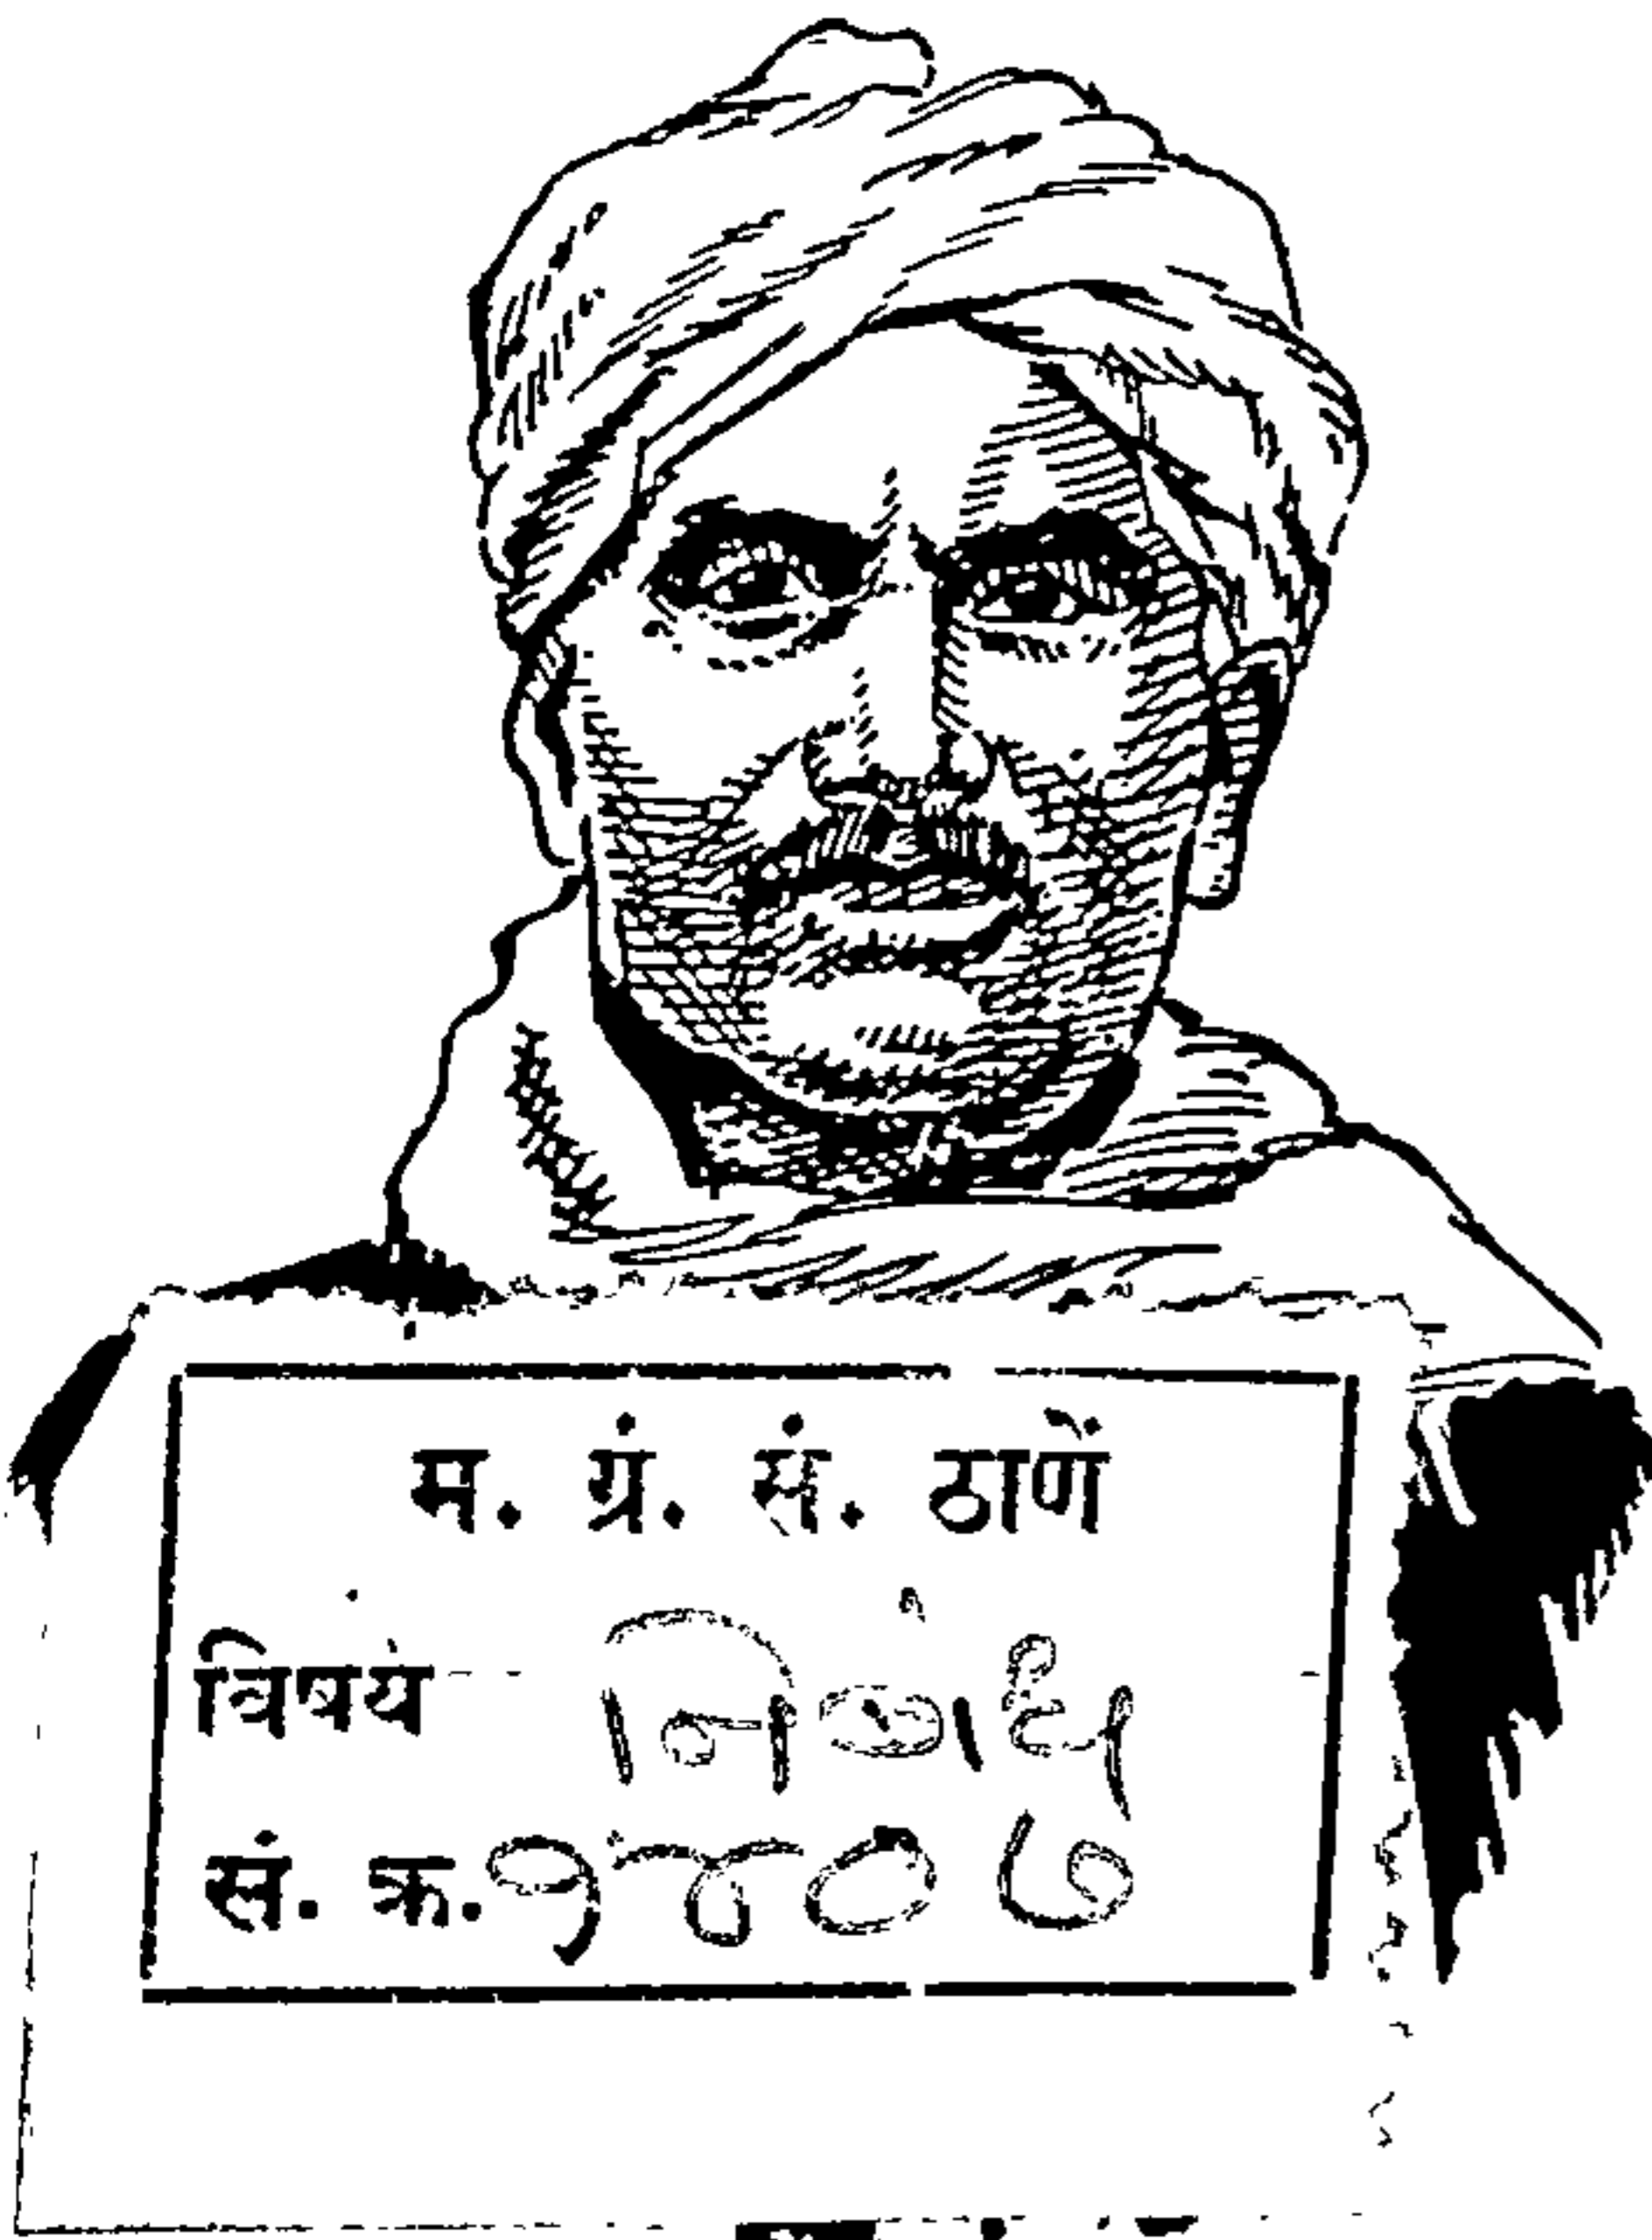 म. ग्रं. सं. ठाणें
विषय निबंध
सं. क्र. १४०७